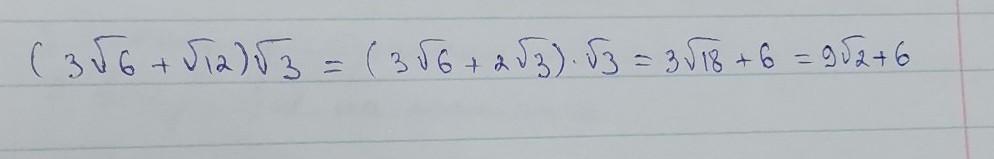 (3√6 + √12)√3 = (3√6 + 2√3)·√3 = 3√18 + 6 = 9√2 + 6